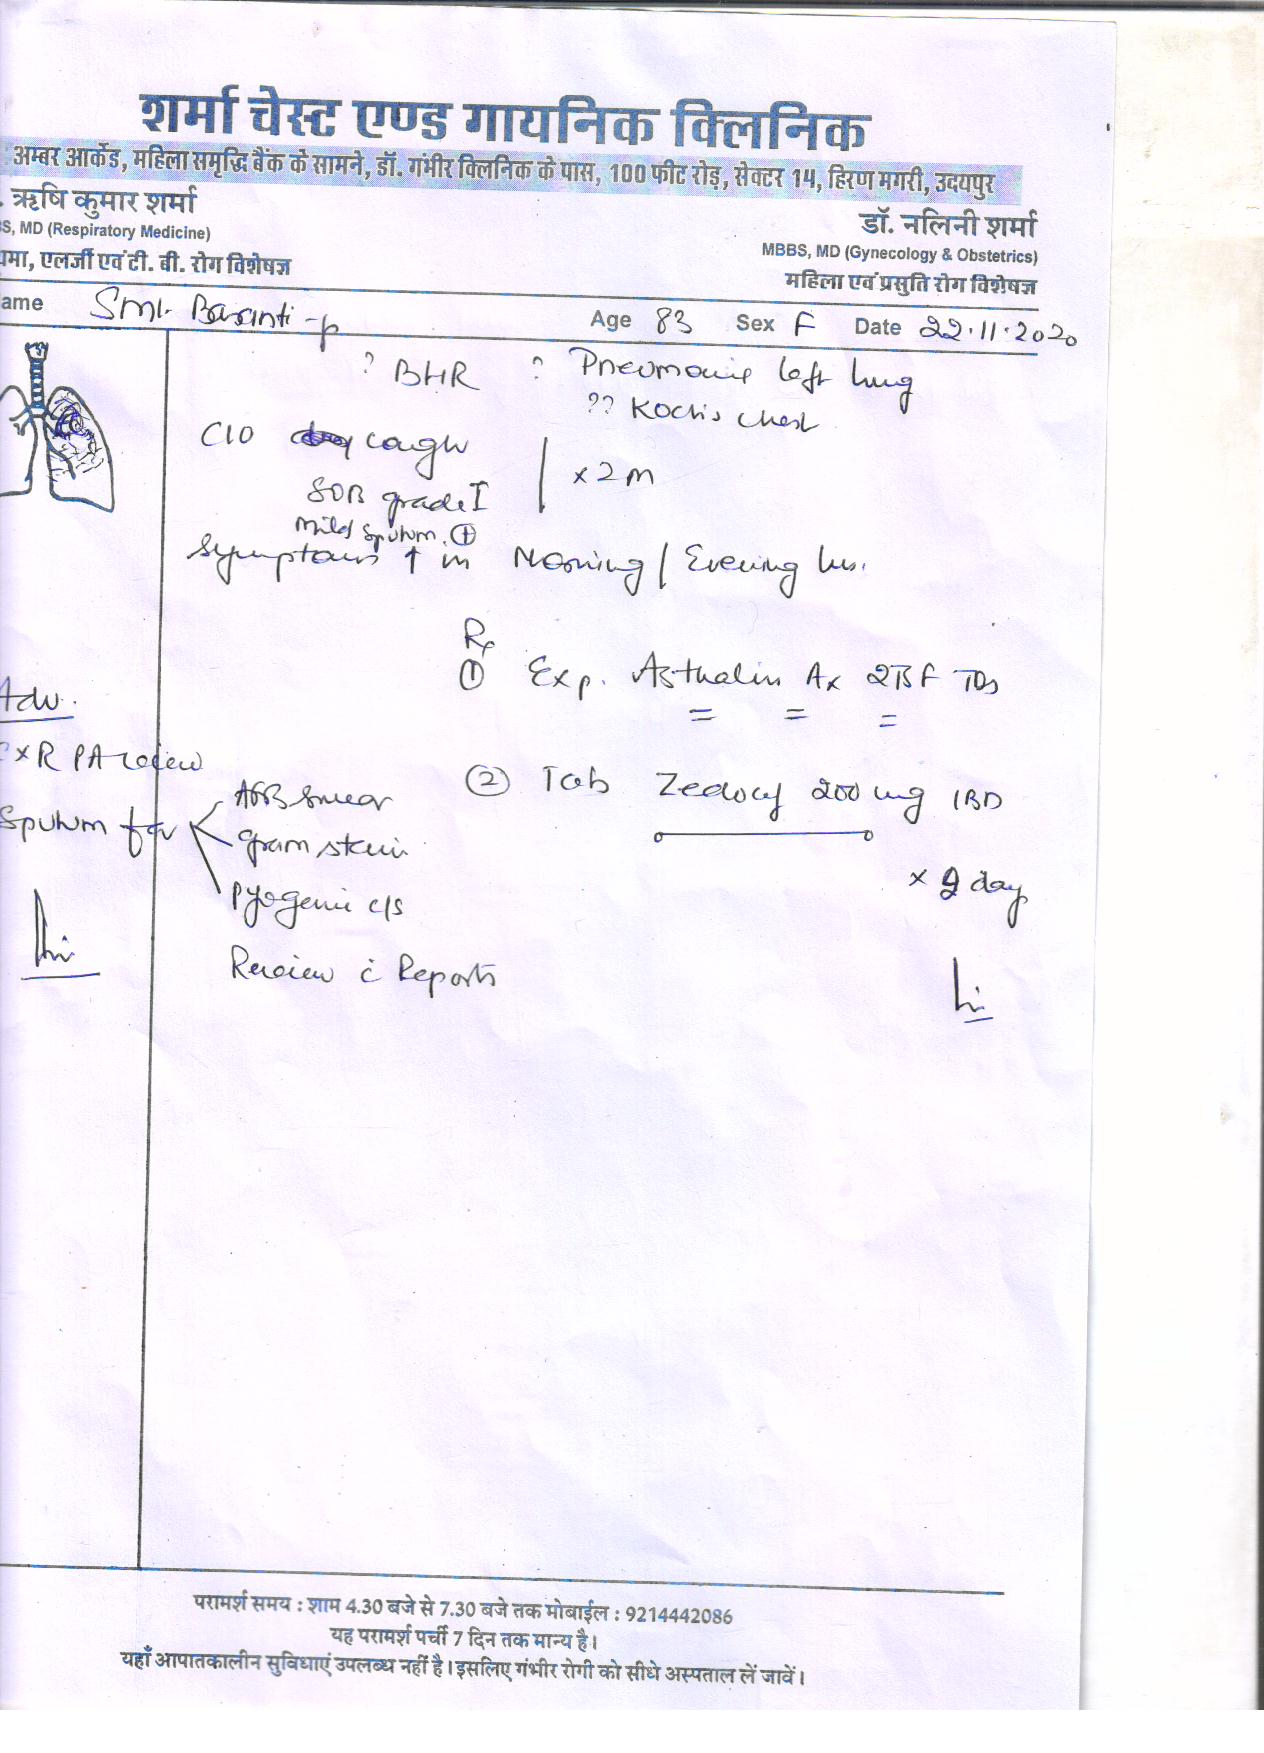 शर्मा चेस्ट एण्ड गायनिक क्लिनिक
अम्बर आर्केड, महिला समृद्धि बैंक के सामने, डॉ. गंभीर क्लिनिक के पास, 100 फीट रोड़, सेक्टर 14, हिरण मगरी, उदयपुर
. ऋषि कुमार शर्मा
S, MD (Respiratory Medicine)
मा, एलर्जी एवं टी. बी. रोग विशेषज्ञ
डॉ. नलिनी शर्मा
MBBS, MD (Gynecology & Obstetrics)
महिला एवं प्रसुति रोग विशेषज्ञ
ame Smt. Basanti Age 83 Sex F Date 22.11.2020
? BHR ? Pneumonia left lung
?? Koch's chest
C/O cough
SOB grade I
x 2 m
Mild sputum. +
Symptoms ↑ in Morning / Evening hrs.
Rx
① Exp. Asthalin Ax 2TSF TDS
Adv.
CXR PA review
② Tab 200 mg 1BD
Sputum for
AFB smear
gram stain
Pyogenic c/s
x day
Review c̄ Reports
परामर्श समय : शाम 4.30 बजे से 7.30 बजे तक मोबाईल : 9214442086
यह परामर्श पर्ची 7 दिन तक मान्य है।
यहाँ आपातकालीन सुविधाएं उपलब्ध नहीं है। इसलिए गंभीर रोगी को सीधे अस्पताल लें जावें।